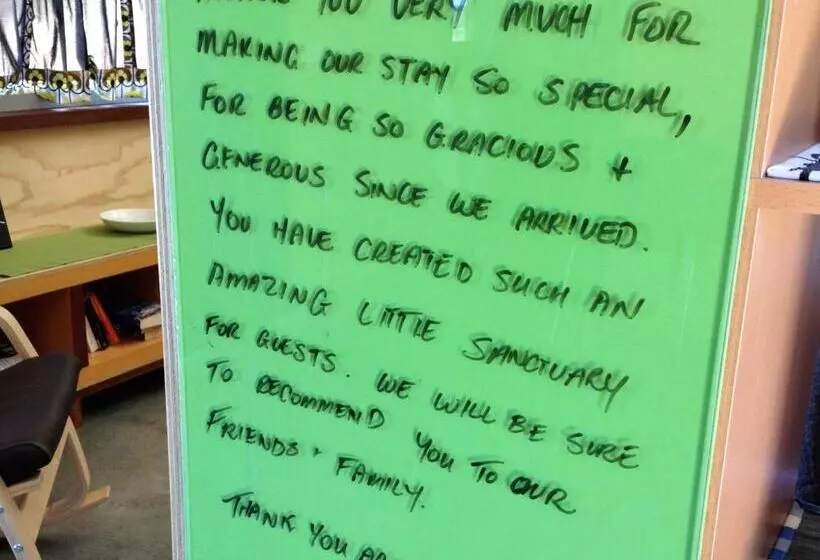 YOU VERY MUCH FOR
MAKING OUR STAY SO SPECIAL,
FOR BEING SO GRACIOUS +
GENEROUS SINCE WE ARRIVED.
YOU HAVE CREATED SUCH AN
AMAZING LITTLE SANCTUARY
FOR GUESTS. WE WILL BE SURE
TO RECOMMEND YOU TO OUR
FRIENDS + FAMILY.
THANK YOU